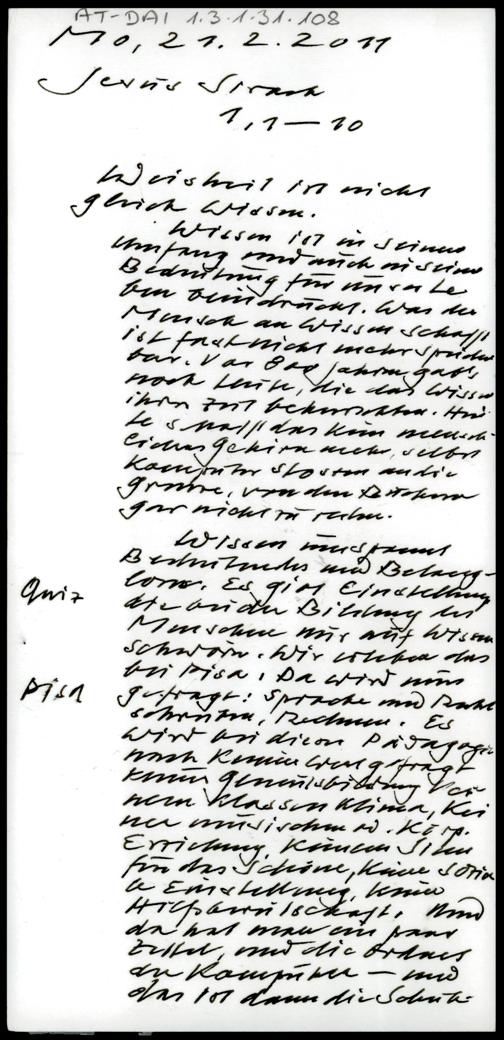 AT-DAI 1.3.1.31.108
Mo, 21.2.2011
Jesus Sirach
1,1—10
Weisheit ist nicht
gleich Wissen.
Wissen ist in seinem
Umfang und auch in seine
Bedeutung für unser Le
ben beeindruckt. Was der
Mensch an Wissen schafft
ist fast nicht mehr speicher
bar. Vor 800 Jahren gab's
noch Leute, die das Wissen
ihrer Zeit beherrschten. Heu
te schafft das kein mensch
liches Gehirn mehr, selbst
Komputer stossen an die
Grenze, von den Büchern
gar nicht zu reden.
Wissen umspannt
Bedeutendes und Belang-
loses. Es gibt Einstellung
die bei der Bildung des
Menschen nur auf Wissen
schwören. Wir erleben das
bei Pisa: Da wird nur
gefragt: Sprache und Recht
schreiben, Rechnen. Es
wird bei dieser Pädagogik
nach keinem gefragt
keine Gemütsbildung kei
nem Klassenklima, kei
ner musischen od. Körp.
Erziehung, keinem Sinn
für das Schöne, keine sozia
le Einstellung, keine
Hilfsbereitschaft. Und
da hat man ein paar
Zettel, und die ordnet
der Komputer — und
das ist dann die Schule
Quiz
Pisa